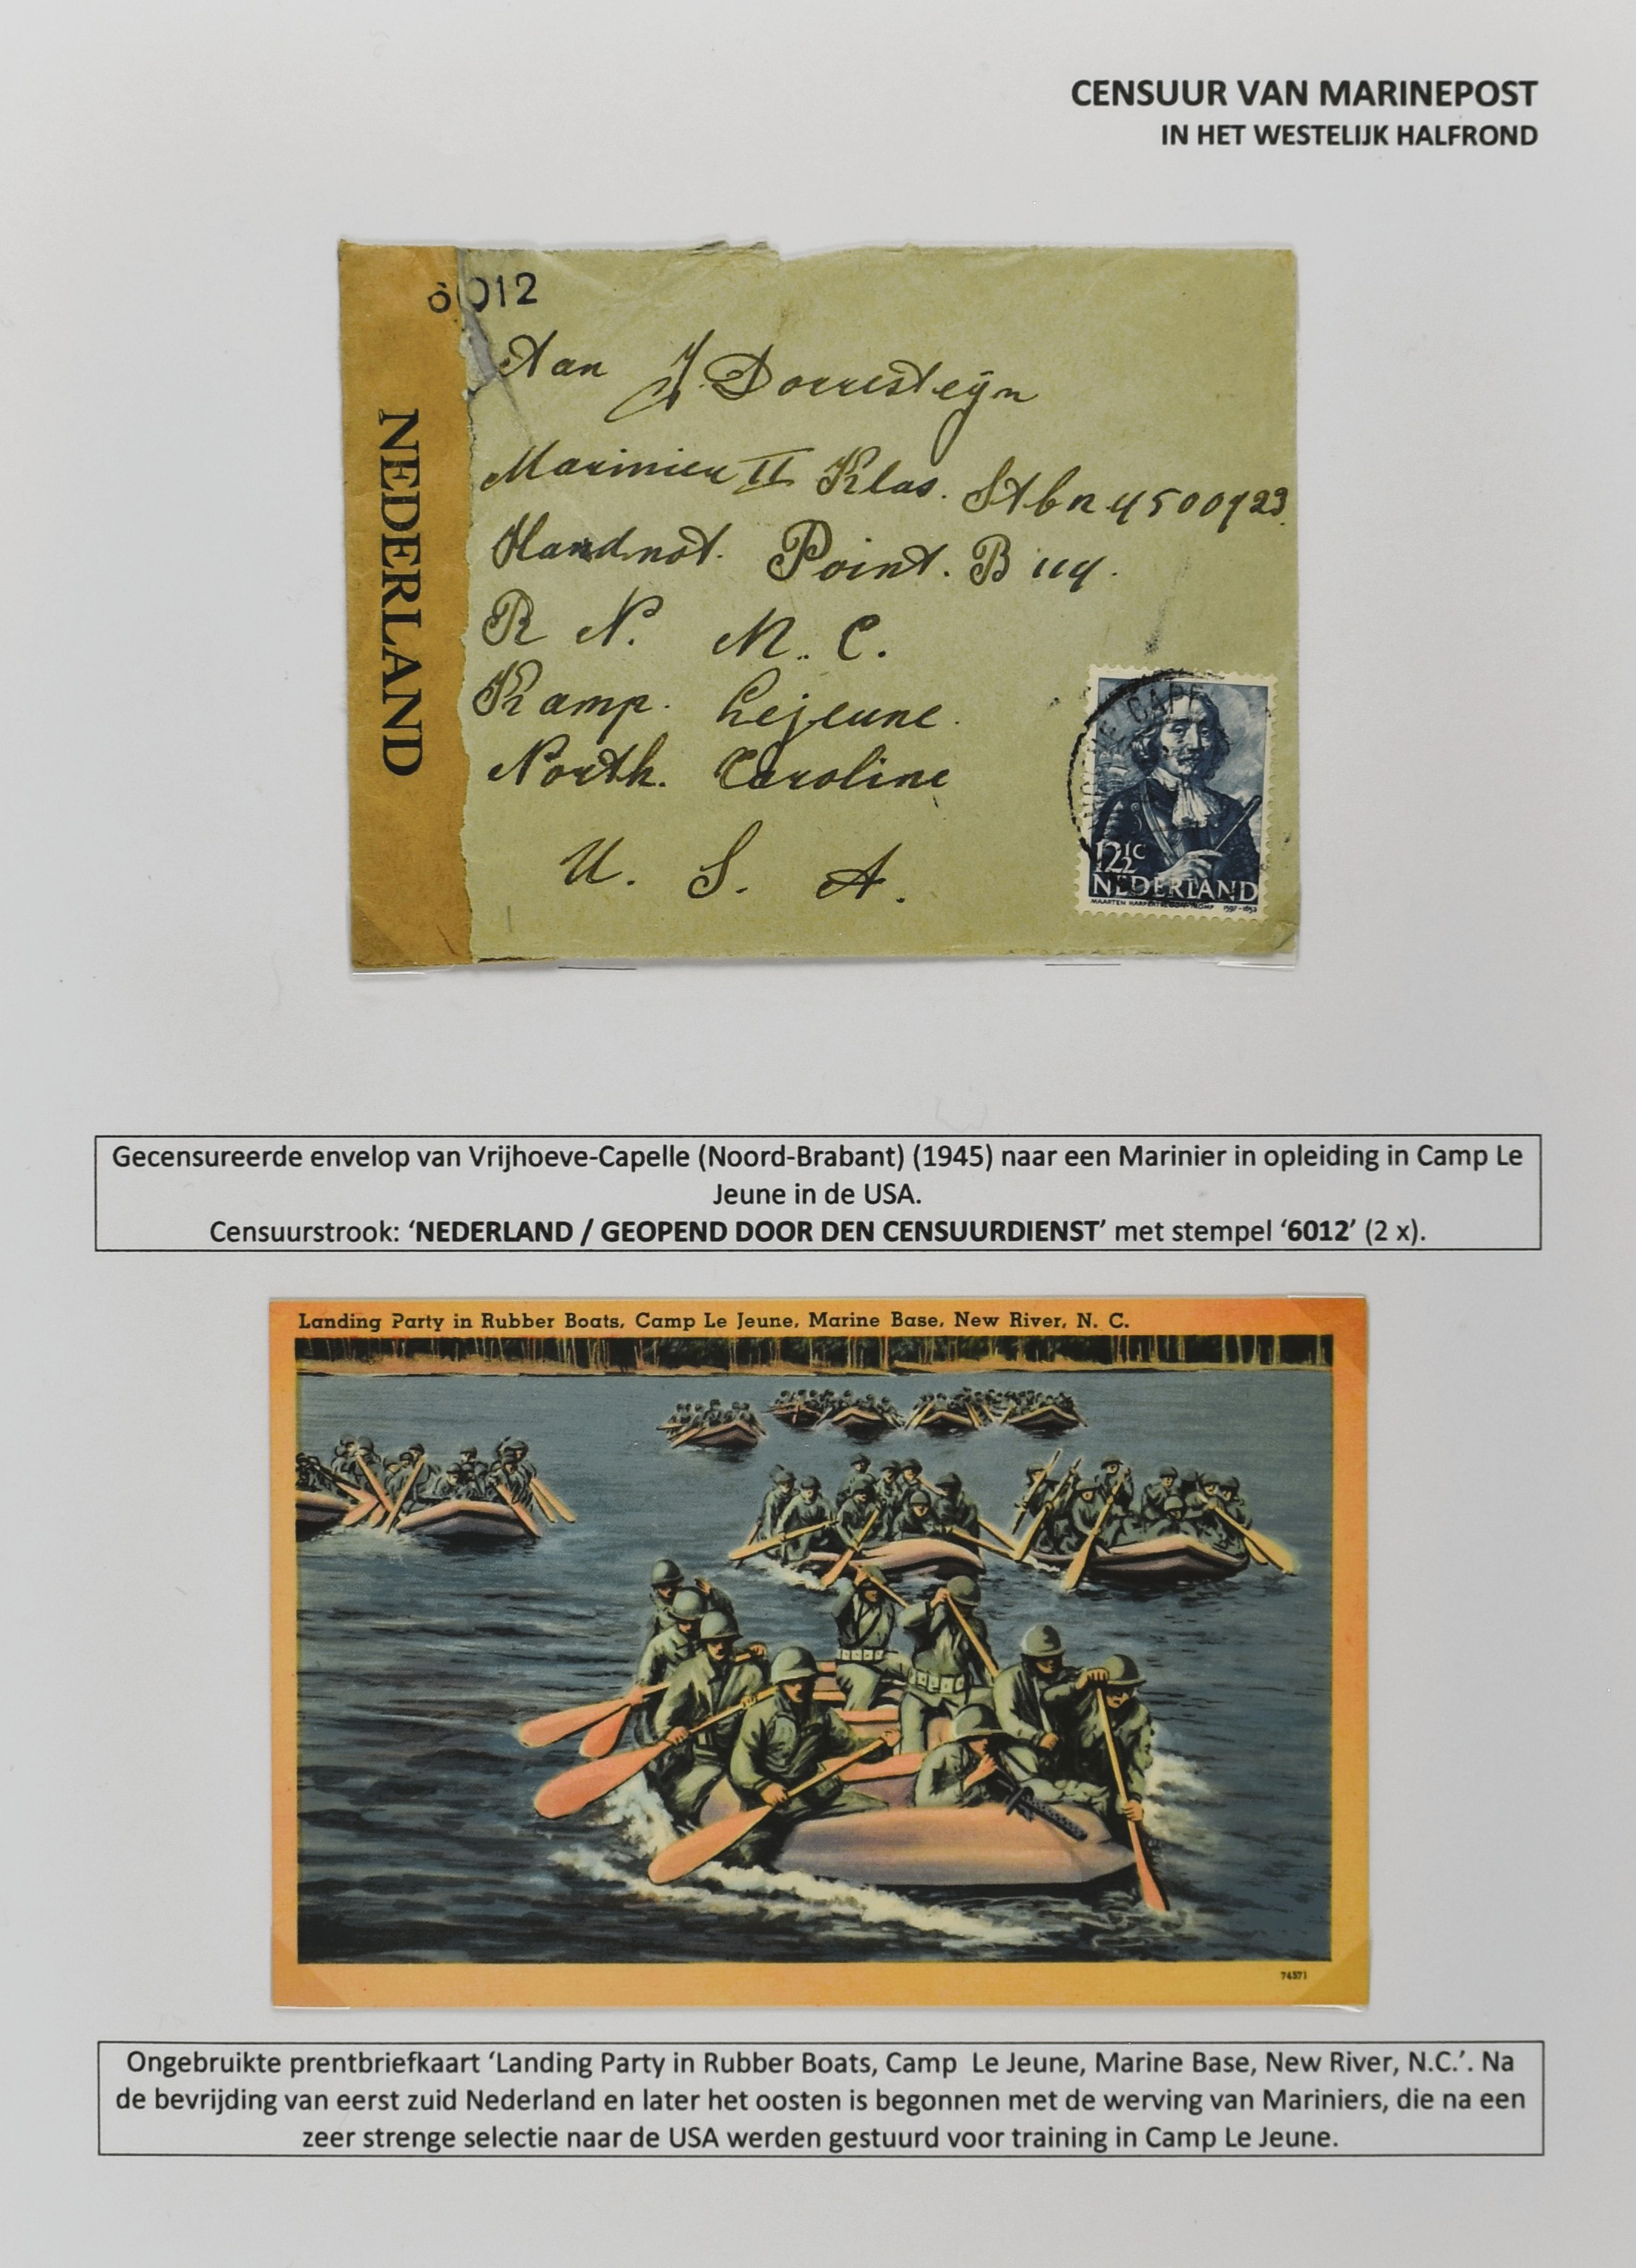 CENSUUR VAN MARINEPOST
IN HET WESTELIJK HALFROND
6012
NEDERLAND
Aan J. Dorresteijn
Marinier II Klas. Stbn 4500923
Handnot. Point. B 114.
R N. M. C.
Kamp. Lejeune.
North. Caroline
U. S. A.
CAPE
12½c
NEDERLAND
MAARTEN HARPERTSZOON TROMP 1597-1653
Gecensureerde envelop van Vrijhoeve-Capelle (Noord-Brabant) (1945) naar een Marinier in opleiding in Camp Le
Jeune in de USA.
Censuurstrook: ‘NEDERLAND / GEOPEND DOOR DEN CENSUURDIENST’ met stempel ‘6012’ (2 x).
Landing Party in Rubber Boats, Camp Le Jeune, Marine Base, New River, N. C.
74571
Ongebruikte prentbriefkaart ‘Landing Party in Rubber Boats, Camp Le Jeune, Marine Base, New River, N.C.’. Na
de bevrijding van eerst zuid Nederland en later het oosten is begonnen met de werving van Mariniers, die na een
zeer strenge selectie naar de USA werden gestuurd voor training in Camp Le Jeune.